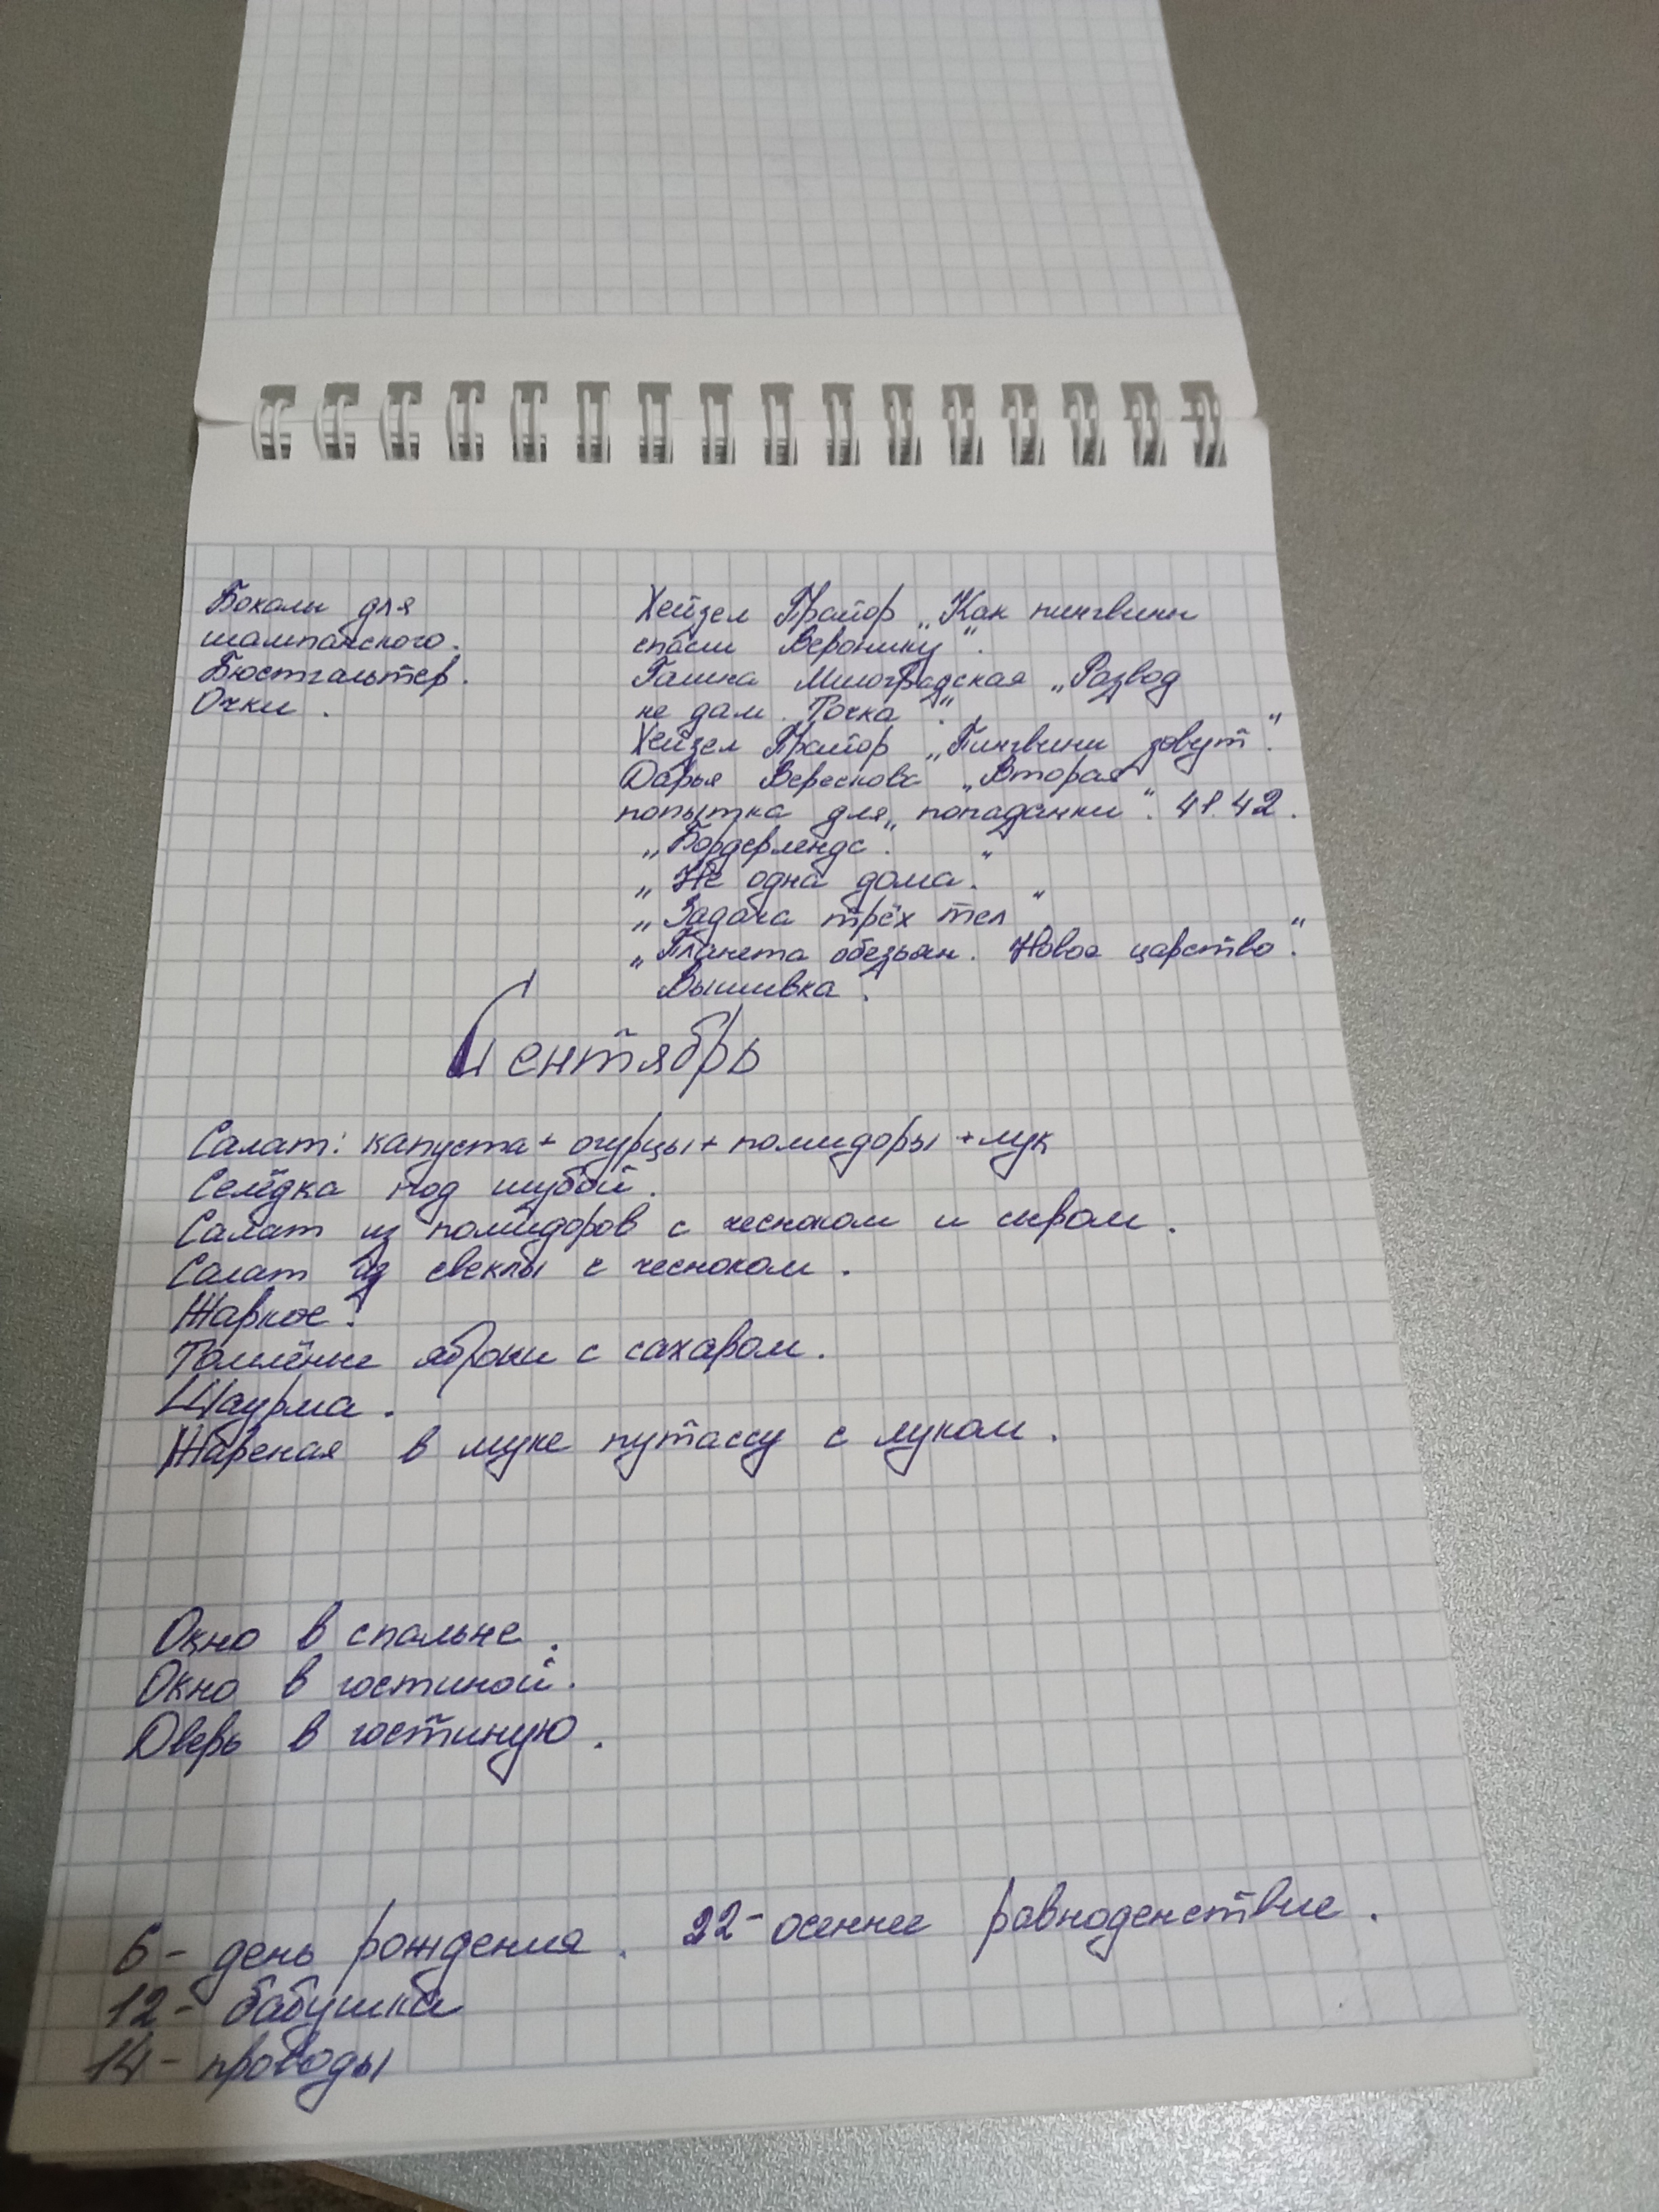 Бокалы для
шампанского.
Бюстгальтер.
Очки.
Хейзел Прайор „Как пингвины
спасли Веронику".
Галина Милоградская „Развод
не дам. Точка".
Хейзел Прайор „Пингвины зовут".
Дарья Верескова „Вторая
попытка для „попаданки". 41.42.
„Бордерлендс".
„Не одна дома."
„Задача трёх тел"
„Планета обезьян. Новое царство".
Вышивка.
Сентябрь
Салат: капуста + огурцы + помидоры + лук
Селёдка под шубой.
Салат из помидоров с чесноком и сыром.
Салат из свеклы с чесноком.
Жаркое.
Томлёные яблоки с сахаром.
Шаурма.
Жареная в муке путассу с луком.
Окно в спальне.
Окно в гостиной.
Дверь в гостиную.
6 - день рождения. 22 - осеннее равноденствие.
12 - бабушка
14 - проводы